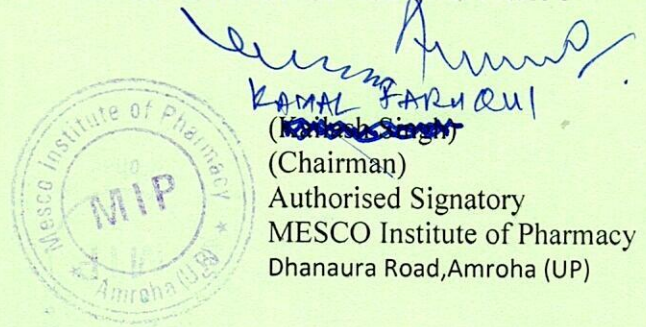 KAMAL FARUQUI
(Kailash Singh)
(Chairman)
Authorised Signatory
MESCO Institute of Pharmacy
Dhanaura Road,Amroha (UP)
Mesco Institute of Pharmacy
MIP
Amroha (U.P)